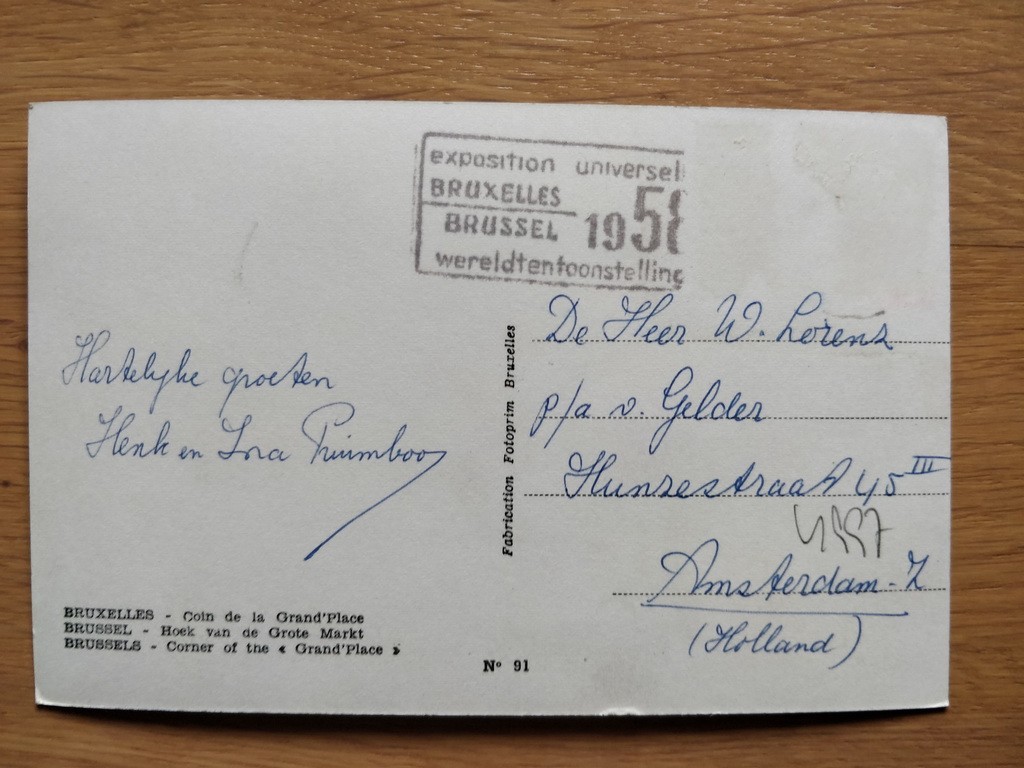 exposition universel
BRUXELLES
BRUSSEL 1958
wereldtentoonstelling
De Heer W. Lorenz
p/a v. Gelder
Hunzestraat 45 III
Amsterdam-Z
(Holland)
Hartelijke groeten
Henk en Ina Pruimboom
Fabrication Fotoprim Bruxelles
BRUXELLES - Coin de la Grand'Place
BRUSSEL - Hoek van de Grote Markt
BRUSSELS - Corner of the « Grand'Place »
Nº 91